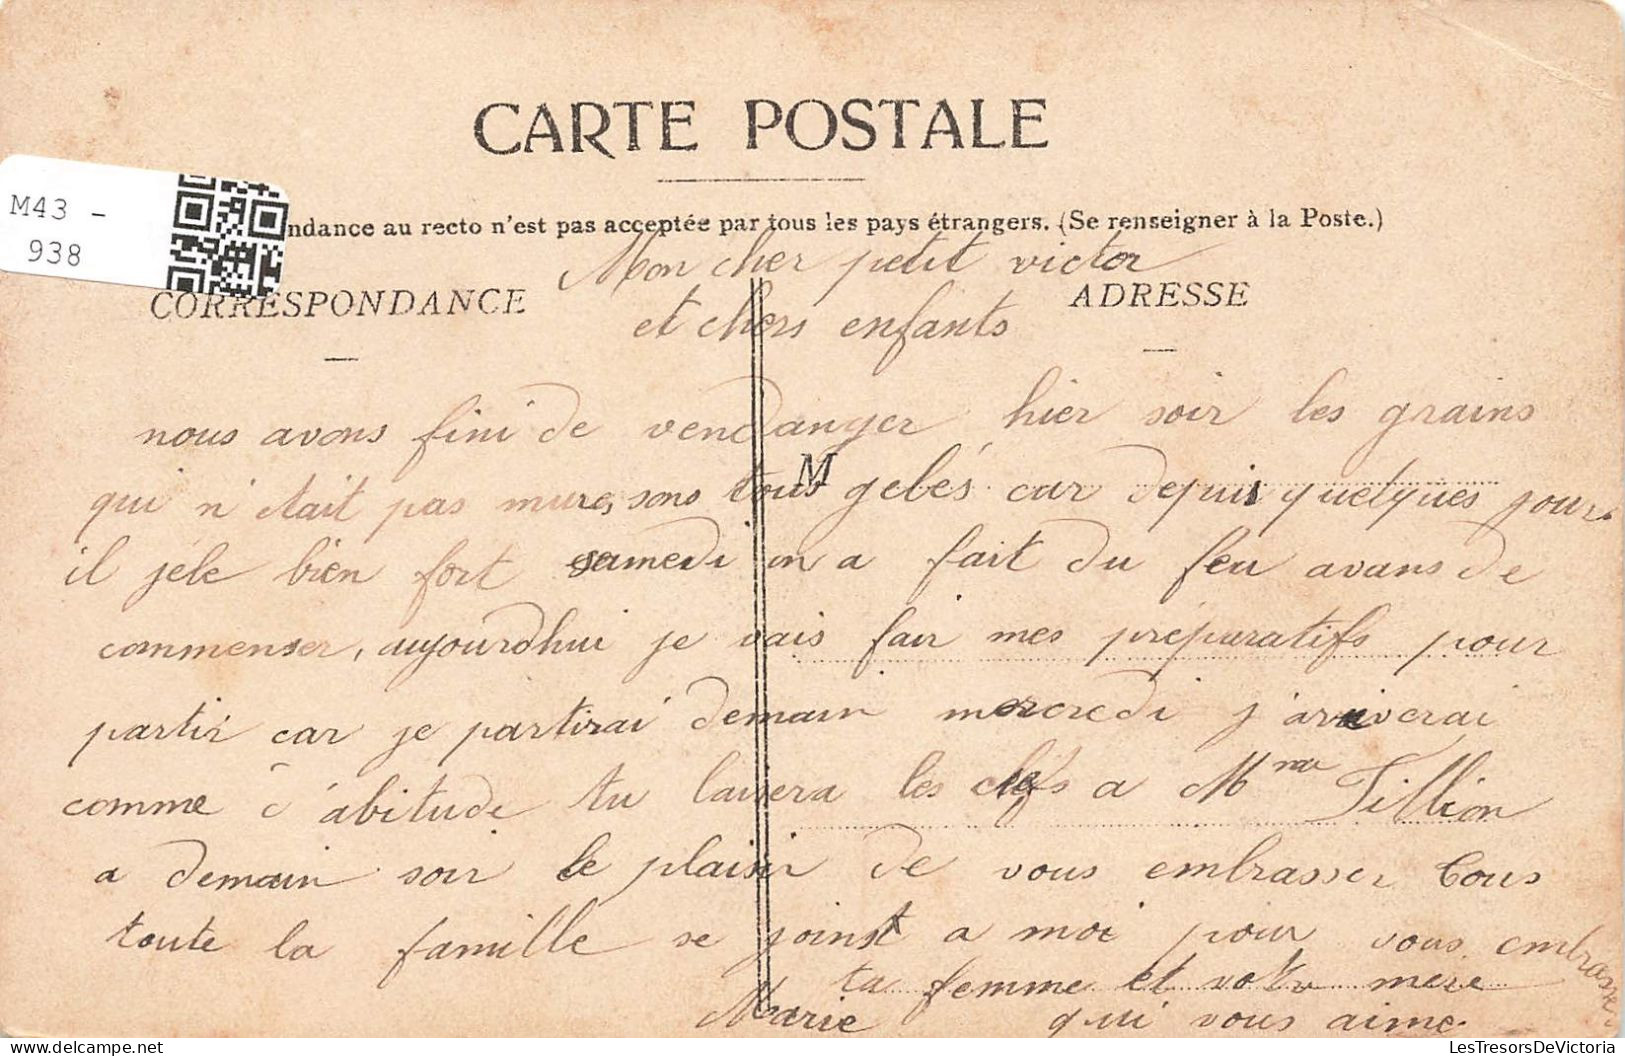 CARTE POSTALE
M43 -
938
ndance au recto n'est pas acceptée par tous les pays étrangers. (Se renseigner à la Poste.)
Mon cher petit victor
CORRESPONDANCE
ADRESSE
et chers enfants
nous avons fini de vendanger hier soir les grains
M
qui n'était pas mure, sons tous gelés car depuis quelques jours
il jele bien fort samedi on a fait du feu avans de
commenser, aujourdhui je vais fair mes préparatifs pour
partir car je partirai demain mercredi j'ariverai
comme d'abitude tu laisera les clefs a Mme Tillion
a demain soir le plaisir de vous embrasser tous
toute la famille se joinst a moi pour vous embrasser
ta femme et votre mere
Marie qui vous aime
LesTresorsDeVictoria